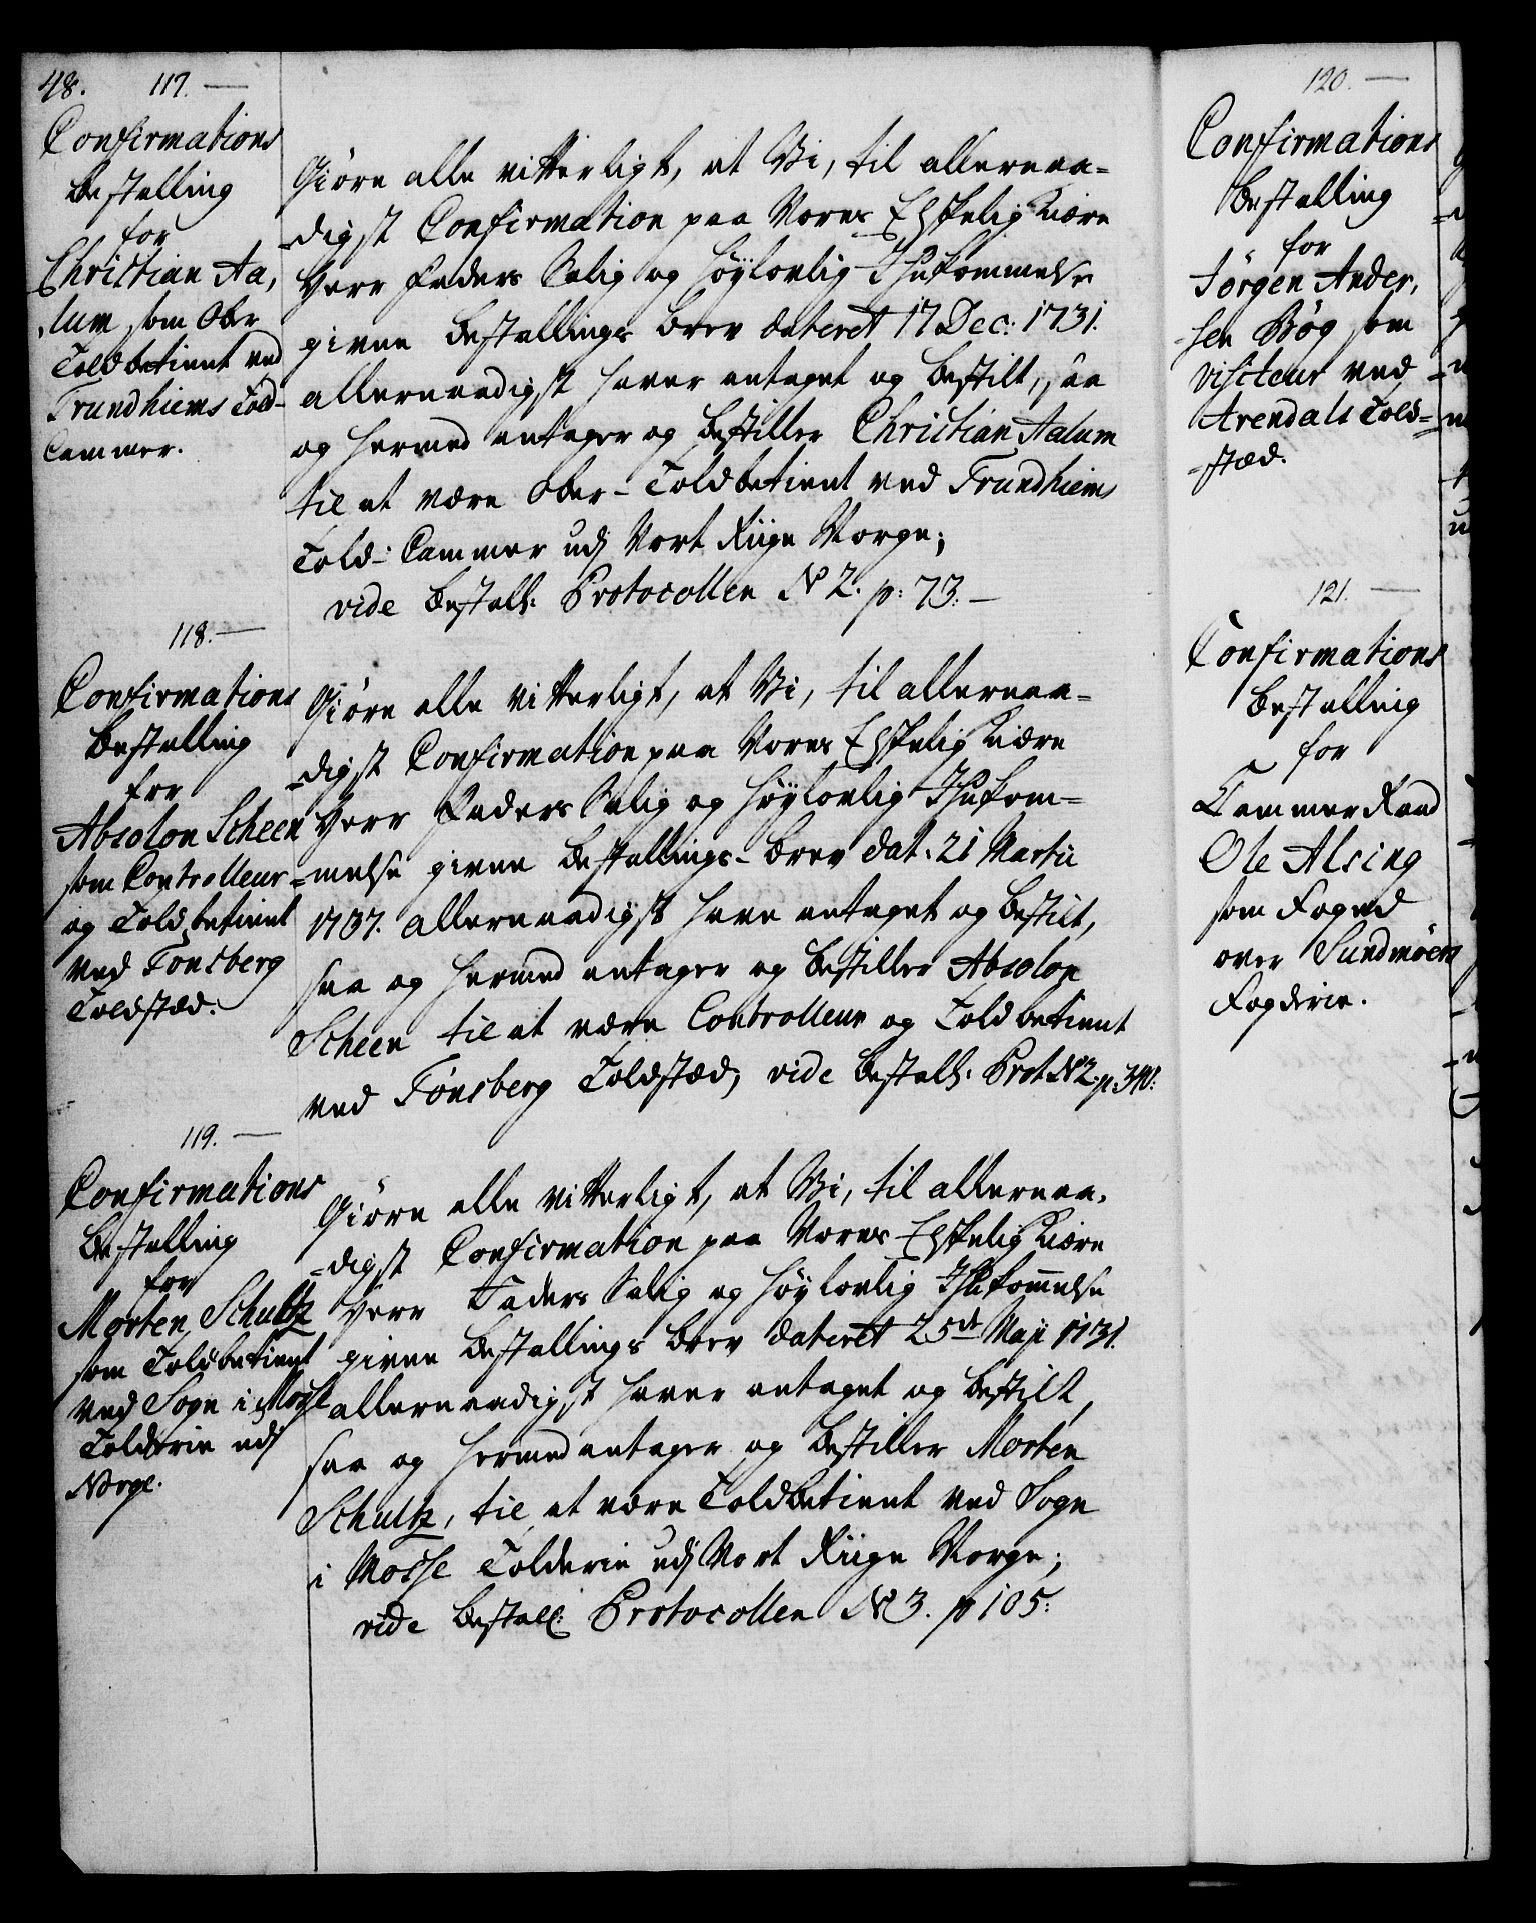 48. 117. —
Confirmations
Bestalling
for
Christian Aa,
lum som Ober
Toldbetient ved
Trundhiems Told-
Cammer.
Giöre alle vitterligt, at Vi, til allernaa-
-digst Confirmation paa Vores Elskelig Kiære
Herr Faders Salig og Höylovlig Ihukommelse
givne Bestallings Brev dateret 17 Dec: 1731.
allernaadigst haver antaget og bestilt, saa
og hermed antager og bestiller Christian Aalum
til at være Ober-Toldbetient ved Trundhiems
Told-Cammer udj Vort Riige Norge;
vide Bestall: Protocollen No 2. p: 73. —
118. —
Confirmations
Bestalling
for
Absolon Scheen
som Controlleur
og Toldbetient
ved Tonsberg
Toldstæd.
Giöre alle vitterligt, at Vi, til allernaa-
-digst Confirmation paa Vores Elskelig Kiære
Herr Faders Salig og Höylovlig Ihukom-
-melse givne Bestallings-Brev dat: 21 Martii
1737. allernaadigst have antaget og bestilt,
saa og hermed antager og bestiller Absolon
Scheen til at være Controlleur og Toldbetient
ved Tönsberg Toldstæd, vide Bestall: Prot No 2. p. 340:
119. —
Confirmations
Bestalling
for
Morten Schultz
som Toldbetient
ved Sogn i Mosse
Tolderie udj
Norge.
Giöre alle vitterligt, at Vi, til allernaa,
-digst Confirmation paa Vores Elskelig Kiære
Herr Faders Salig og Höylovlig Ihukommelse
givne Bestallings Brev dateret 25de Maji 1731.
allernaadigst haver antaget og bestilt,
saa og hermed antager og bestiller Morten
Schultz, til at være Toldbetient ved Sogn
i Mosse Tolderie udj Vort Riige Norge;
vide Bestall: Protocollen No 3. p 105:
120. —
Confirmations
Bestalling
for
Jörgen Ander,
-sen Bög som
Visiteur ved
Arendals Told-
-stæd.
121. —
Confirmations
Bestalling
for
Cammer Raad
Ole Alsing
som Foged
over Sundmöers
Fogderie.